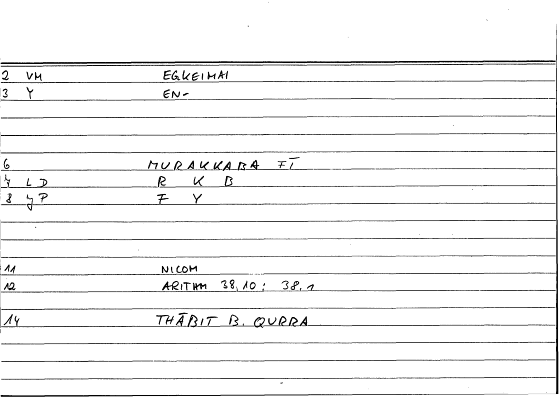 2 VM EGKEIMAI
3 Y EN-
6 MURAKKABA FĪ
7 LD R K B
8 YP F Y
11 NICOM
12 ARITHM 38,10 : 38,1
14 THĀBIT B. QURRA